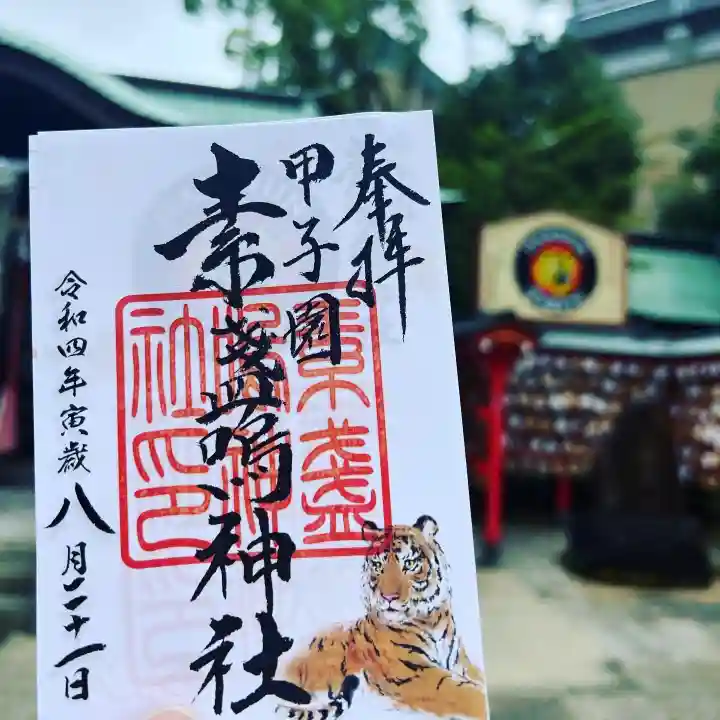 奉拝
甲子園
素盞嗚神社
素盞
社之印
令和四年寅歳八月二十一日